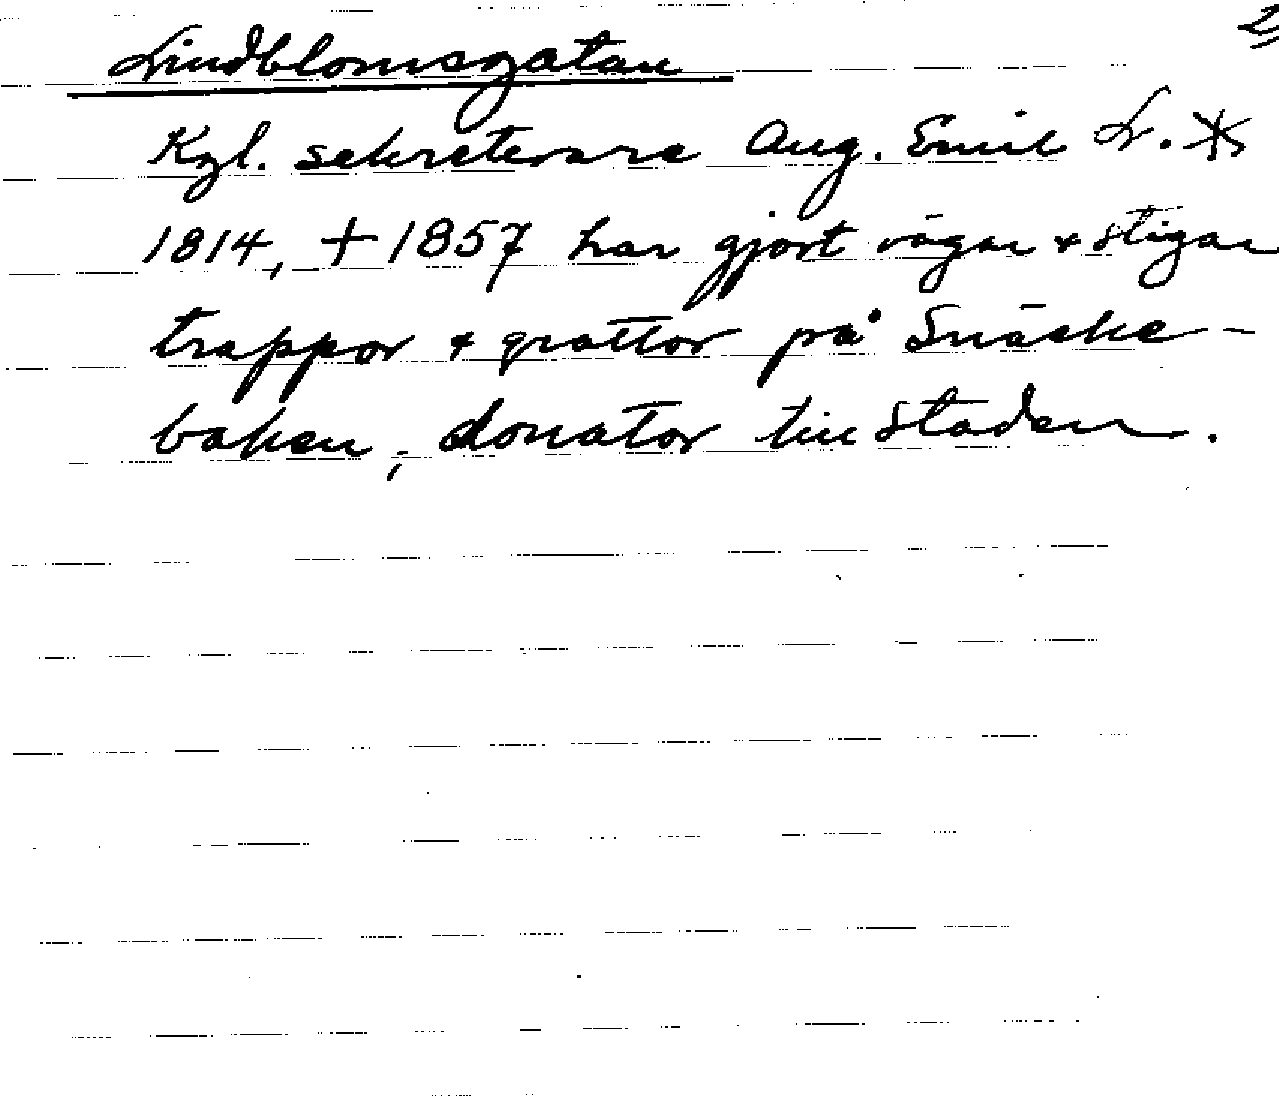 2)
Lindblomsgatan
Kgl. sekreterare Aug. Emil L. *
1814, + 1857 har gjort vägar & stigar
trappor & grottor på Snäcke-
backen, donator till staden.